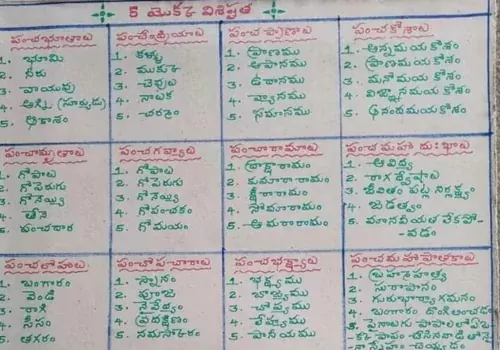 5 యొక్క విశిష్టత
పంచభూతాలు
1. భూమి
2. నీరు
3. వాయువు
4. అగ్ని (సూర్యుడు)
5. ఆకాశం
పంచేంద్రియాలు
1. కళ్ళు
2. ముక్కు
3. చెవులు
4. నాలుక
5. చర్మం
పంచప్రాణాలు
1. ప్రాణము
2. అపానము
3. ఉదానము
4. వ్యానము
5. సమానము
పంచకోశాలు
1. అన్నమయకోశం
2. ప్రాణమయకోశం
3. మనోమయకోశం
4. విజ్ఞానమయకోశం
5. ఆనందమయకోశం
పంచామృతాలు
1. గోపాలు
2. గోపెరుగు
3. గోనెయ్యి
4. తేనె
5. పంచదార
పంచగవ్యాలు
1. గోపాలు
2. గోపెరుగు
3. గోనెయ్యి
4. గోపంచకం
5. గోమయం
పంచారామాలు
1. ద్రాక్షారామం
2. కుమారారామం
3. క్షీరారామం
4. సోమారామం
5. అమరారామం
పంచమహాదుఃఖాలు
1. అవిద్య
2. రాగద్వేషాలు
3. జీవితం పట్ల నిర్లక్ష్యం
4. జడత్వం
5. మానవీయత లేకపో-
వడం
పంచలోహాలు
1. బంగారం
2. వెండి
3. రాగి
4. సీసం
5. తగరం
పంచోపచారాలు
1. స్నానం
2. పూజ
3. నైవేద్యం
4. ప్రదక్షిణం
5. నమస్కారం
పంచభక్ష్యాలు
1. భక్ష్యము
2. భోజ్యము
3. చోష్యము
4. లేహ్యము
5. పానీయము
పంచమహాపాతకాలు
1. బ్రహ్మహత్య
2. సురాపానం
3. గురుభార్యాగమనం
4. బంగారం దొంగిలించడం
5. పైనాలుగు పాపాలలో ఏఒ-
-క్క పాపం చేసినవాడితోనై
-నా స్నేహం చెయ్యడం